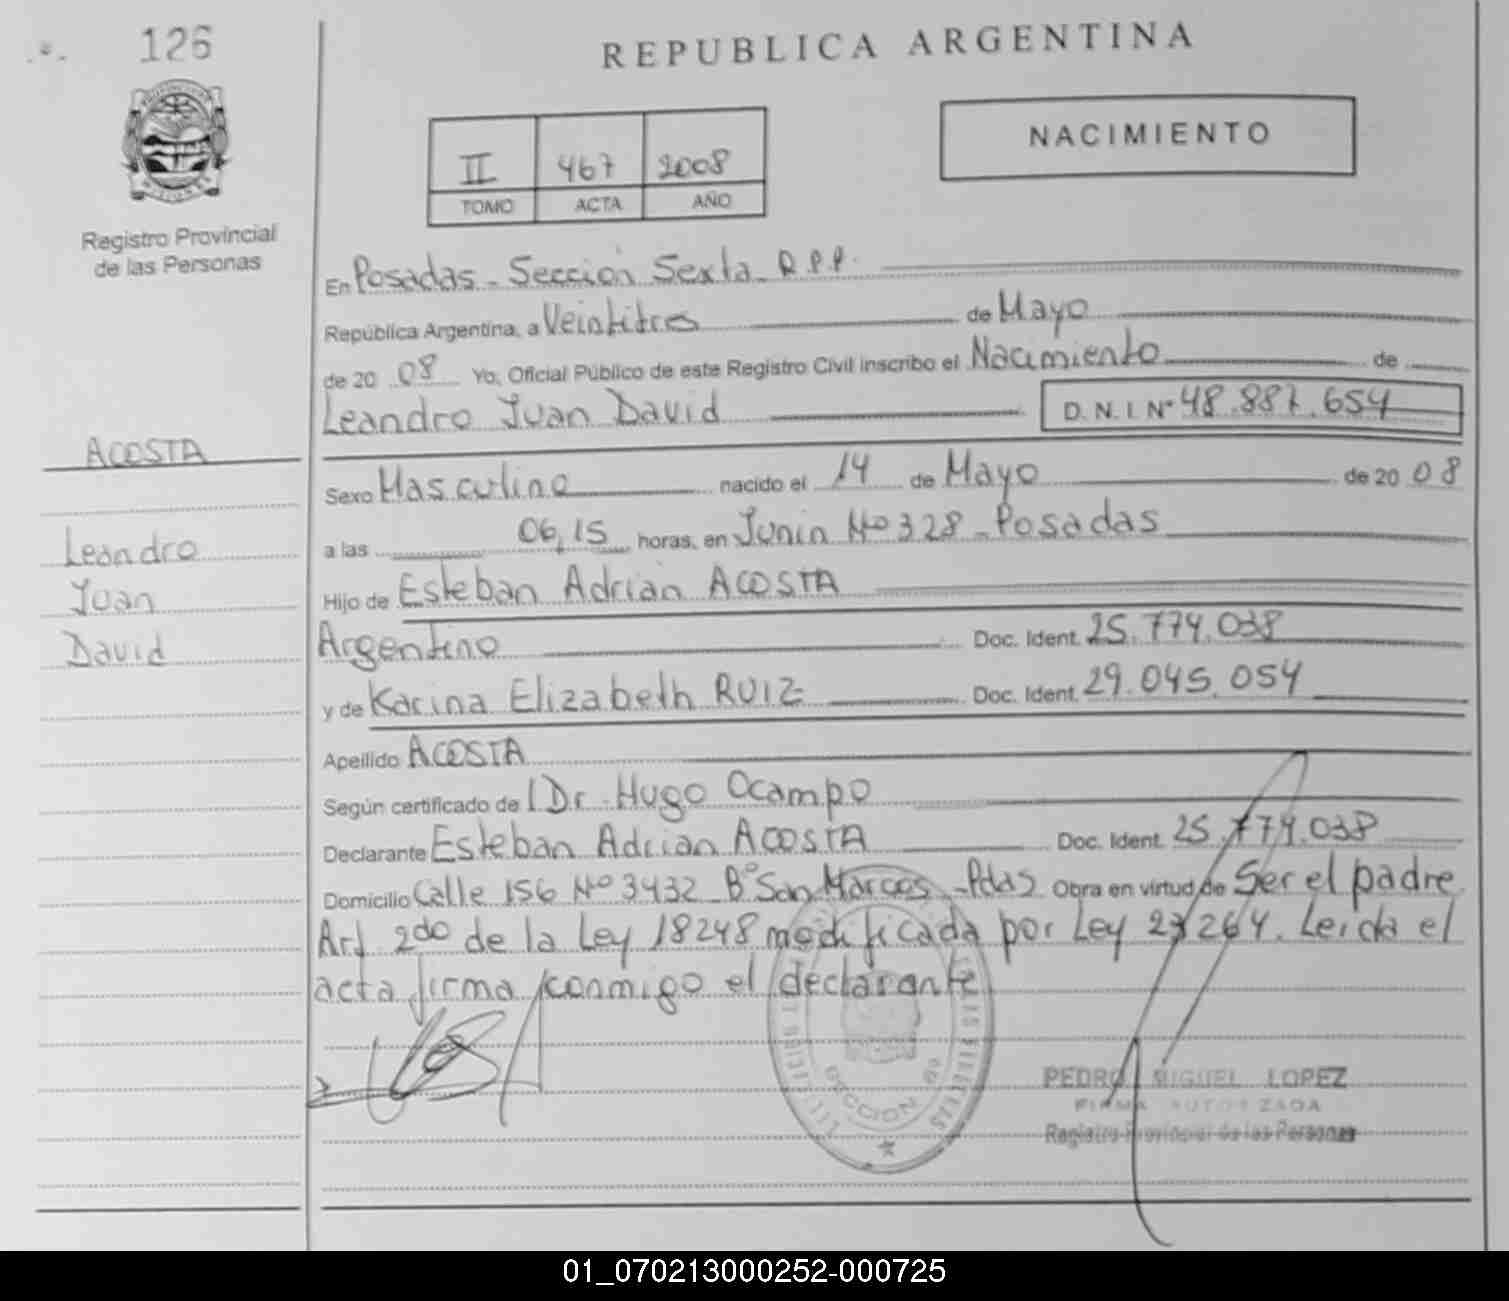 126
REPUBLICA ARGENTINA
NACIMIENTO
II 467 2008
TOMO ACTA AÑO
Registro Provincial
de las Personas
En Posadas - Sección Sexta - R.P.P.
República Argentina, a Veintitres de Mayo
de 20 08 Yo, Oficial Público de este Registro Civil inscribo el Nacimiento de
Leandro Juan David D.N.I. Nº 48.887.654
ACOSTA
Leandro
Juan
David
Sexo Masculino nacido el 14 de Mayo de 20 08
a las 06,15 horas, en Junin Nº 328 - Posadas
Hijo de Esteban Adrian ACOSTA
Argentino Doc. Ident. 25.774.038
y de Karina Elizabeth RUIZ Doc. Ident. 29.045.054
Apellido ACOSTA
Según certificado de l Dr. Hugo Ocampo
Declarante Esteban Adrian ACOSTA Doc. Ident. 25.774.038
Domicilio Calle 156 Nº 3432 - Bº San Marcos - Pdas Obra en virtud de Ser el padre
Art 2do de la Ley 18248 modificada por Ley 23264. Leida el
acta firma conmigo el declarante
SECCION
PEDRO MIGUEL LOPEZ
FIRMA AUTORIZADA
Registro Provincial de las Personas
01_070213000252-000725